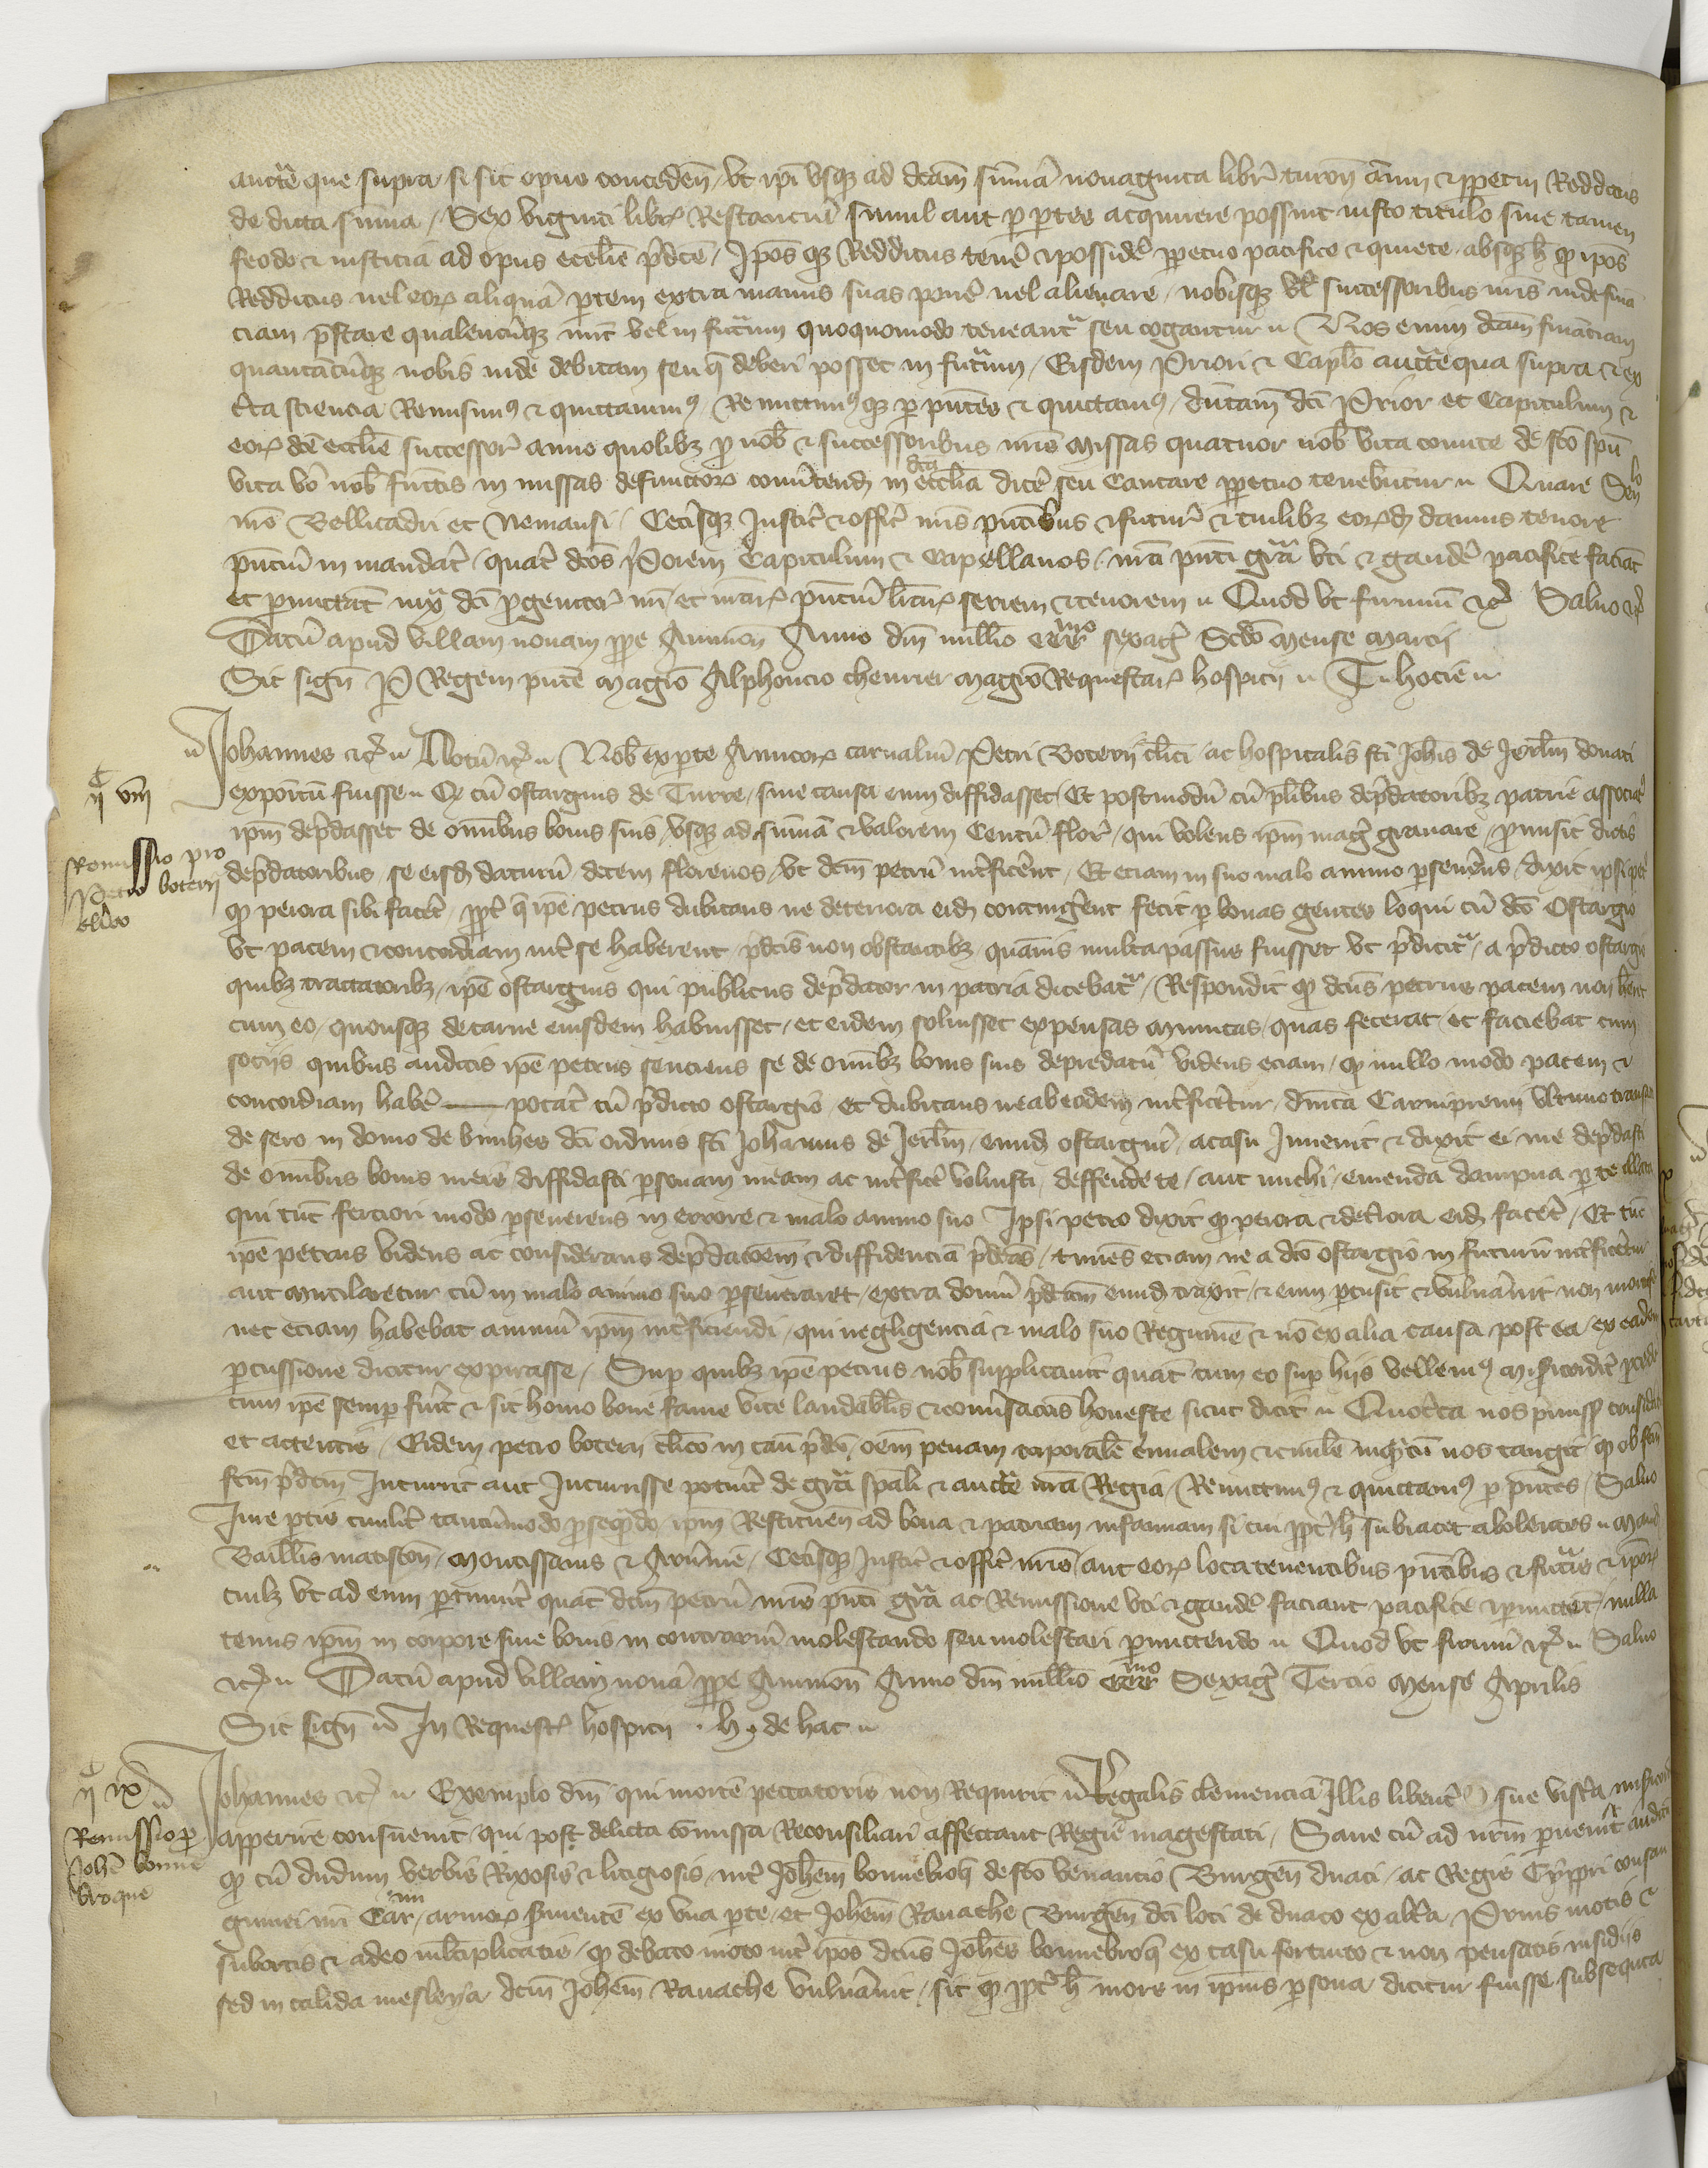 auctẽ que supra si sit opus conceden̄ / vt ip̄i vsq3 ad dc̄am sūmā nonaginta libr̃ turon̄ annui & ꝑpetui Redditus
de dicta sūma / Sex viginti libr̃ Restanciū simul aut ꝑ ꝑtes acquirere possint iusto titulo sine tamen
feodo & iusticia ad opus eccl̄ie p̄dc̄e / Ip̄os q3 Redditus tenẽ & possidẽ ꝑpetuo pacifice & quiete absq3 h̄ ꝙ ip̄os
Redditus uel eorꝝ aliquā ꝑtem extra manus suas ponẽ uel alienare / nobisq3 vl̄ successoribus nr̄is inde finā
ciam p̄stare qualencūq3 nūc vel in futurum quoquomodo teneantᷣ seu cogantur ~ Nos enim dc̄am finātiam
quantācūq3 nobis inde debitam seu q̄ deberi posset in futurum / Eisdem Priori & Capl̄o auctẽ qua supra & ex
c̄ta sciencia Remisimꝰ & quittauimꝰ / Remittimꝰ q3 ꝑ pn̄tes & quittamꝰ / dūtam dc̄i Prior et Capitulum &
eorꝝ dc̄e eccl̄ie successor̃ anno quolib3 ꝓ nob̄ & successoribus nr̄is missas quatuor nob̄ vita comite de sc̄o spū
vita vo nob̄ functis in missas defunctorꝝ conūtend in dc̄a eccl̄ia dicẽ seu Cantare ꝑpetuo tenebuntur ~ Quare Senlo
mo Bellicadri et Nemausi / Cet̄isq3 Justic̃ & offic̃ nr̄is pn̄tibus & futur̃ & cuilib3 eorꝝd damus tenore
pn̄ciū in mandat̃ / quat̃ dc̄os Priorem Capitulum & Capellanos / nr̄a pn̄ti gr̄a vti & gaudẽ pacifice faciāt
et ꝑmittāt iux̃ dc̄i ꝓgenitor̃ nr̄i et nr̄arꝝ pn̄ciū l̄rarꝝ seriem & tenorem ~ Quod vt firmū &c̃ Saluo &c̃
Datū apud villam nouam ꝓpe Auinion̄ Anno dn̄i mill̄o CCCmo sexag̃ Scdo mense marcij
Sic sign̄ Per Regem pn̄te magro Alphoncio cheurier magro Requestarꝝ hospicij ~
Johannes &c̃ ~ Notū &c̃ ~ Nob̄ ex ꝑte Amicorꝝ carnaliū Petri Boterij cl̄ici ac hospitalis sc̄i Joh̄is de Jerl̄m donati
q̃ viij
expoītū fuisse ~ Qꝫ cū ostargius de Turre / sine causa eum diffidasset / Et postmodū cū pl̄ibus dep̄datorib3 patrie associat̃
ip̄m dep̄dasset de om̄ibus bonis suis / vsq3 ad sūmā & valorem Centū flor̃ / qui volens ip̄m mag̃ grauare / ꝓmisit dictis
Remissio pro
Petro boterij
cl̄ico
dep̄datoribus / se eisd daturū / decem florenos / vt dc̄m petrū int̃ficẽnt / Et eciam in suo malo animo ꝑseuẽns / dixit ipsi pet̃
ꝙ peiora sibi facẽt / ꝓpt̃ q̄ ip̄e petrus dubitans ne deteriora eid contingẽnt fecit ꝑ bonas gentes loqui cū dc̄o Ostargio
vt pacem & concordiam int̃ se haberent / p̄dc̄is non obstantib3 / quāuis multa passus fuisset vt p̄dicitᷣ / a p̄dicto ostargio
quib3 tractatorib3 / ip̄e ostargius qui publicus dep̄dator in patria dicebatᷣ / Respondit ꝙ dc̄us petrus pacem non h̄ent
cum eo / quousq3 de carne eiusdem habuisset / et eidem soluisset expensas minutas / quas fecerat / et faciebat cum
sociis quibus auditis ip̄e petrus senciens se de om̄ib3 bonis suis depredatū videns eciam / ꝙ nullo modo pacem &
concordiam habẽ — potat̃ cū p̄dicto ostargio / et dubitans ne ab eodem int̃ficẽtur / dn̄ica Carnipreuij vltimo transacta
de sero in domo de binhes dc̄i ordinis sc̄i Johannis de Jerl̄m / eund ostargiū / a casu Jnuenit & dixit ei / me dep̄dasti
de omnibus bonis meis / diffidasti ꝑsonam meam ac int̃ficẽ voluisti / deffende te / aut michi / emenda dampna ꝑ te illata
qui tūc forciori modo ꝑseuerens in errore & malo animo suo Ipsi petro dixit ꝙ peiora & det̃iora eid facẽt / Et tūc
ip̄e petrus videns ac considerans dep̄dac̄oem & diffidenciā p̄dc̄as / timēs eciam ne a dc̄o ostargio in futurū int̃ficẽtur
aut mutilaretur cū in malo animo suo ꝑseueraret / extra domū p̄dc̄am eund traxit / & eum ꝑcusit & vulnẽuit non
nec eciam habebat animū ip̄m int̃ficiendi / qui negligencia & malo suo Regimine & nō ex alia causa post ea / ex eadem
ꝑcussione dicitur expirasse / Sup quib3 ip̄e petrus nob̄ supplicauit quat̃ cum eo sup hijs vellemꝰ
cum ip̄e semꝑ fuit̃ & sit homo bone fame vite laudabil̄is & conũsac̄ois honeste sicut dicit ~ Quocc̃a nos ꝑmiss̃
et attentis / Eidem petro boterij cl̄ico in casu p̄dc̄o / om̄em penam corporalẽ c̃mīalem & ciuilẽ inq̃ntū nos tangit ꝙ ob
fc̄m p̄dc̄m Incurrit aut Incurrisse potuit̃ de gr̄a spāli & auctẽ nr̄a Regia / Remittimꝰ & quittamꝰ ꝑ pn̄tes / Saluo
Iure ꝑtis ciuilit̃ tantūmodo ꝓsequendo / ip̄m Restituen̄ ad bona & patriam infamiam si cui ꝓpt̃ h̄ subiacet abolentes ~ Mand
Bail̄lis matiscon̄ / Montissanis & Aruernie / Cet̄isq3 Justic̃ & offic̃ nr̄is / aut eorꝝ locatenentibus pn̄tibus & futuris & ip̄orꝝ
cuil3 vt ad eum ꝑtinuit̃ quat̃ dc̄m petrū nr̄is pn̄ti gr̄a ac Remissione vti & gaudẽ faciant pacifice & ꝑmittāt / nulla
tenus ip̄m in corpore siue bonis in contrariū molestando seu molestari ꝑmittendo ~ Quod vt firmū &c̃ ~ Saluo
&c̃ ~ Datū apud villam nouā ꝓpe Auinion̄ Anno dn̄i mill̄o CCCmo Sexag̃ Tercio mense Aprilis
Sic sign̄ ~ In Requestꝝ hospicij . h . de hac ~
q̃ ix
Johannes &c̃ ~ Exemplo dn̄i qui mortē peccatoris non Requirit ~ Regalis clemencia Illis libent̃ sue visc̃a
Remissio ꝓ
Joh̄e bonne
broque
apperire consueuit / qui post delicta cōmissa Reconsiliari affectant Regie magestati / Sane cū ad nr̄m ꝑuenit̃ auditū
ꝙ cū dudum verbis Rixosis & litigiosis / int̃ Joh̄em bonnebroq̄ de sc̄o venancio Burgen̄ duaci / ac Regis Cypri consan
guinei nr̄i Car̃mi / armorꝝ s̃uientē ex vna ꝑte / et Joh̄em Rauache Burgen̄ dc̄i loci de duaco ex alt̃a Prius motis &
subortis & adeo mltiplicatis / ꝙ debato moto int̃ ip̄os dc̄us Joh̄es bonnebroq̄ ex casu fortuito & non pensatis insidijs
sed in calida mesleya dc̄m Joh̄em Rauache vulnẽuit / sic ꝙ ꝓpt̃ h̄ mors in ip̄ius ꝑsona dicitur fuisse subsequta